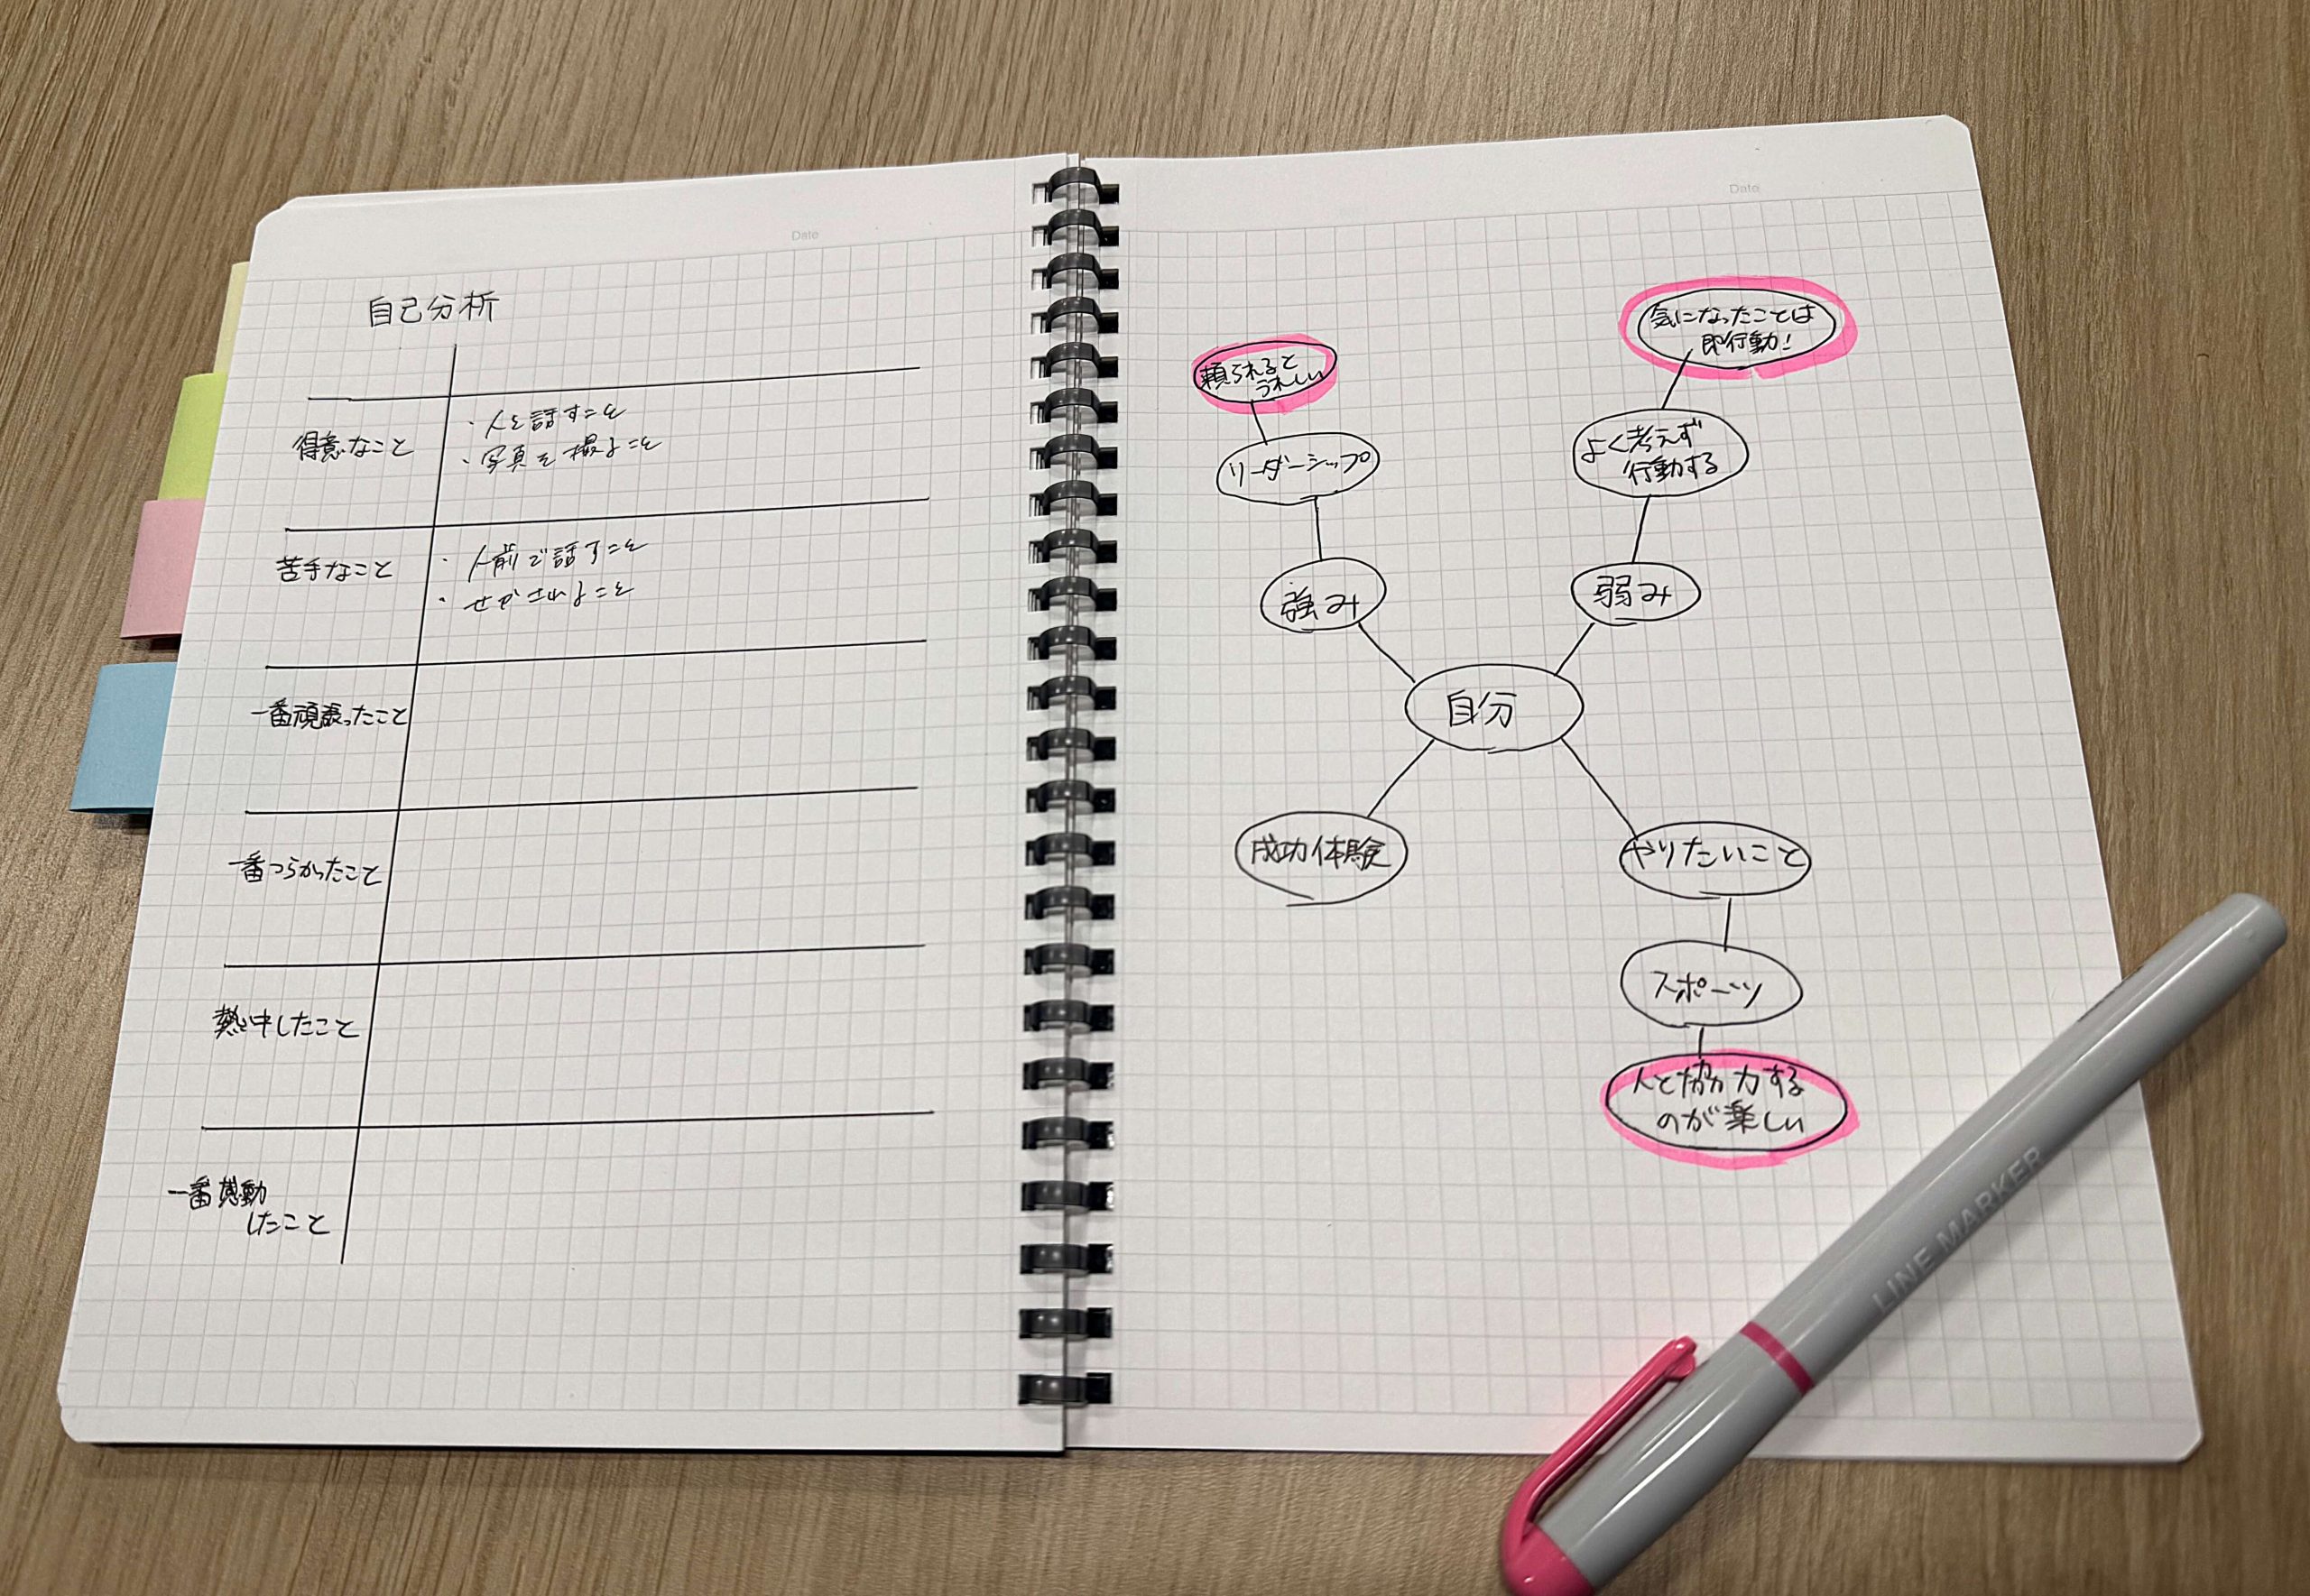 Date
自己分析
得意なこと
・人と話すこと
・写真を撮ること
苦手なこと
・人前で話すこと
・せかされること
一番頑張ったこと
一番つらかったこと
熱中したこと
一番感動
したこと
Date
頼られると
うれしい
リーダーシップ
強み
気になったことは
即行動!
よく考えず
行動する
弱み
自分
成功体験
やりたいこと
スポーツ
人と協力する
のが楽しい
LINE MARKER